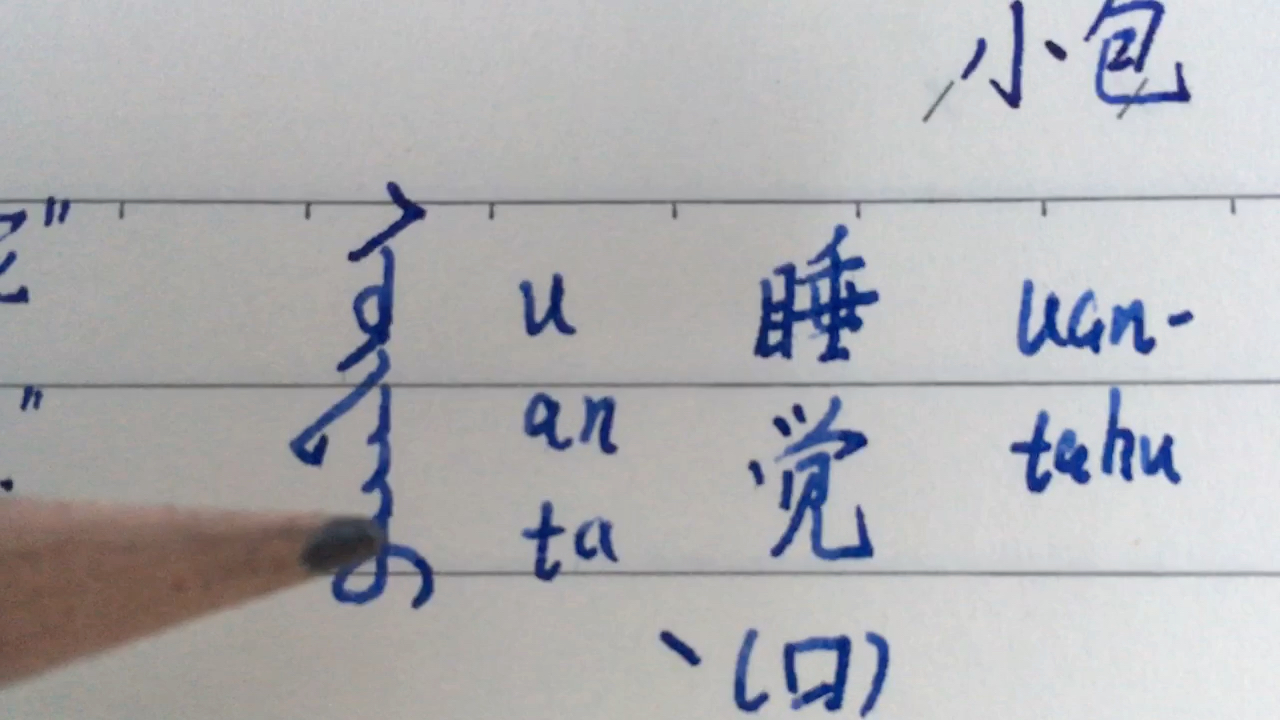 小包
u 睡 uan-
an 觉 tahu
ta
、(口)